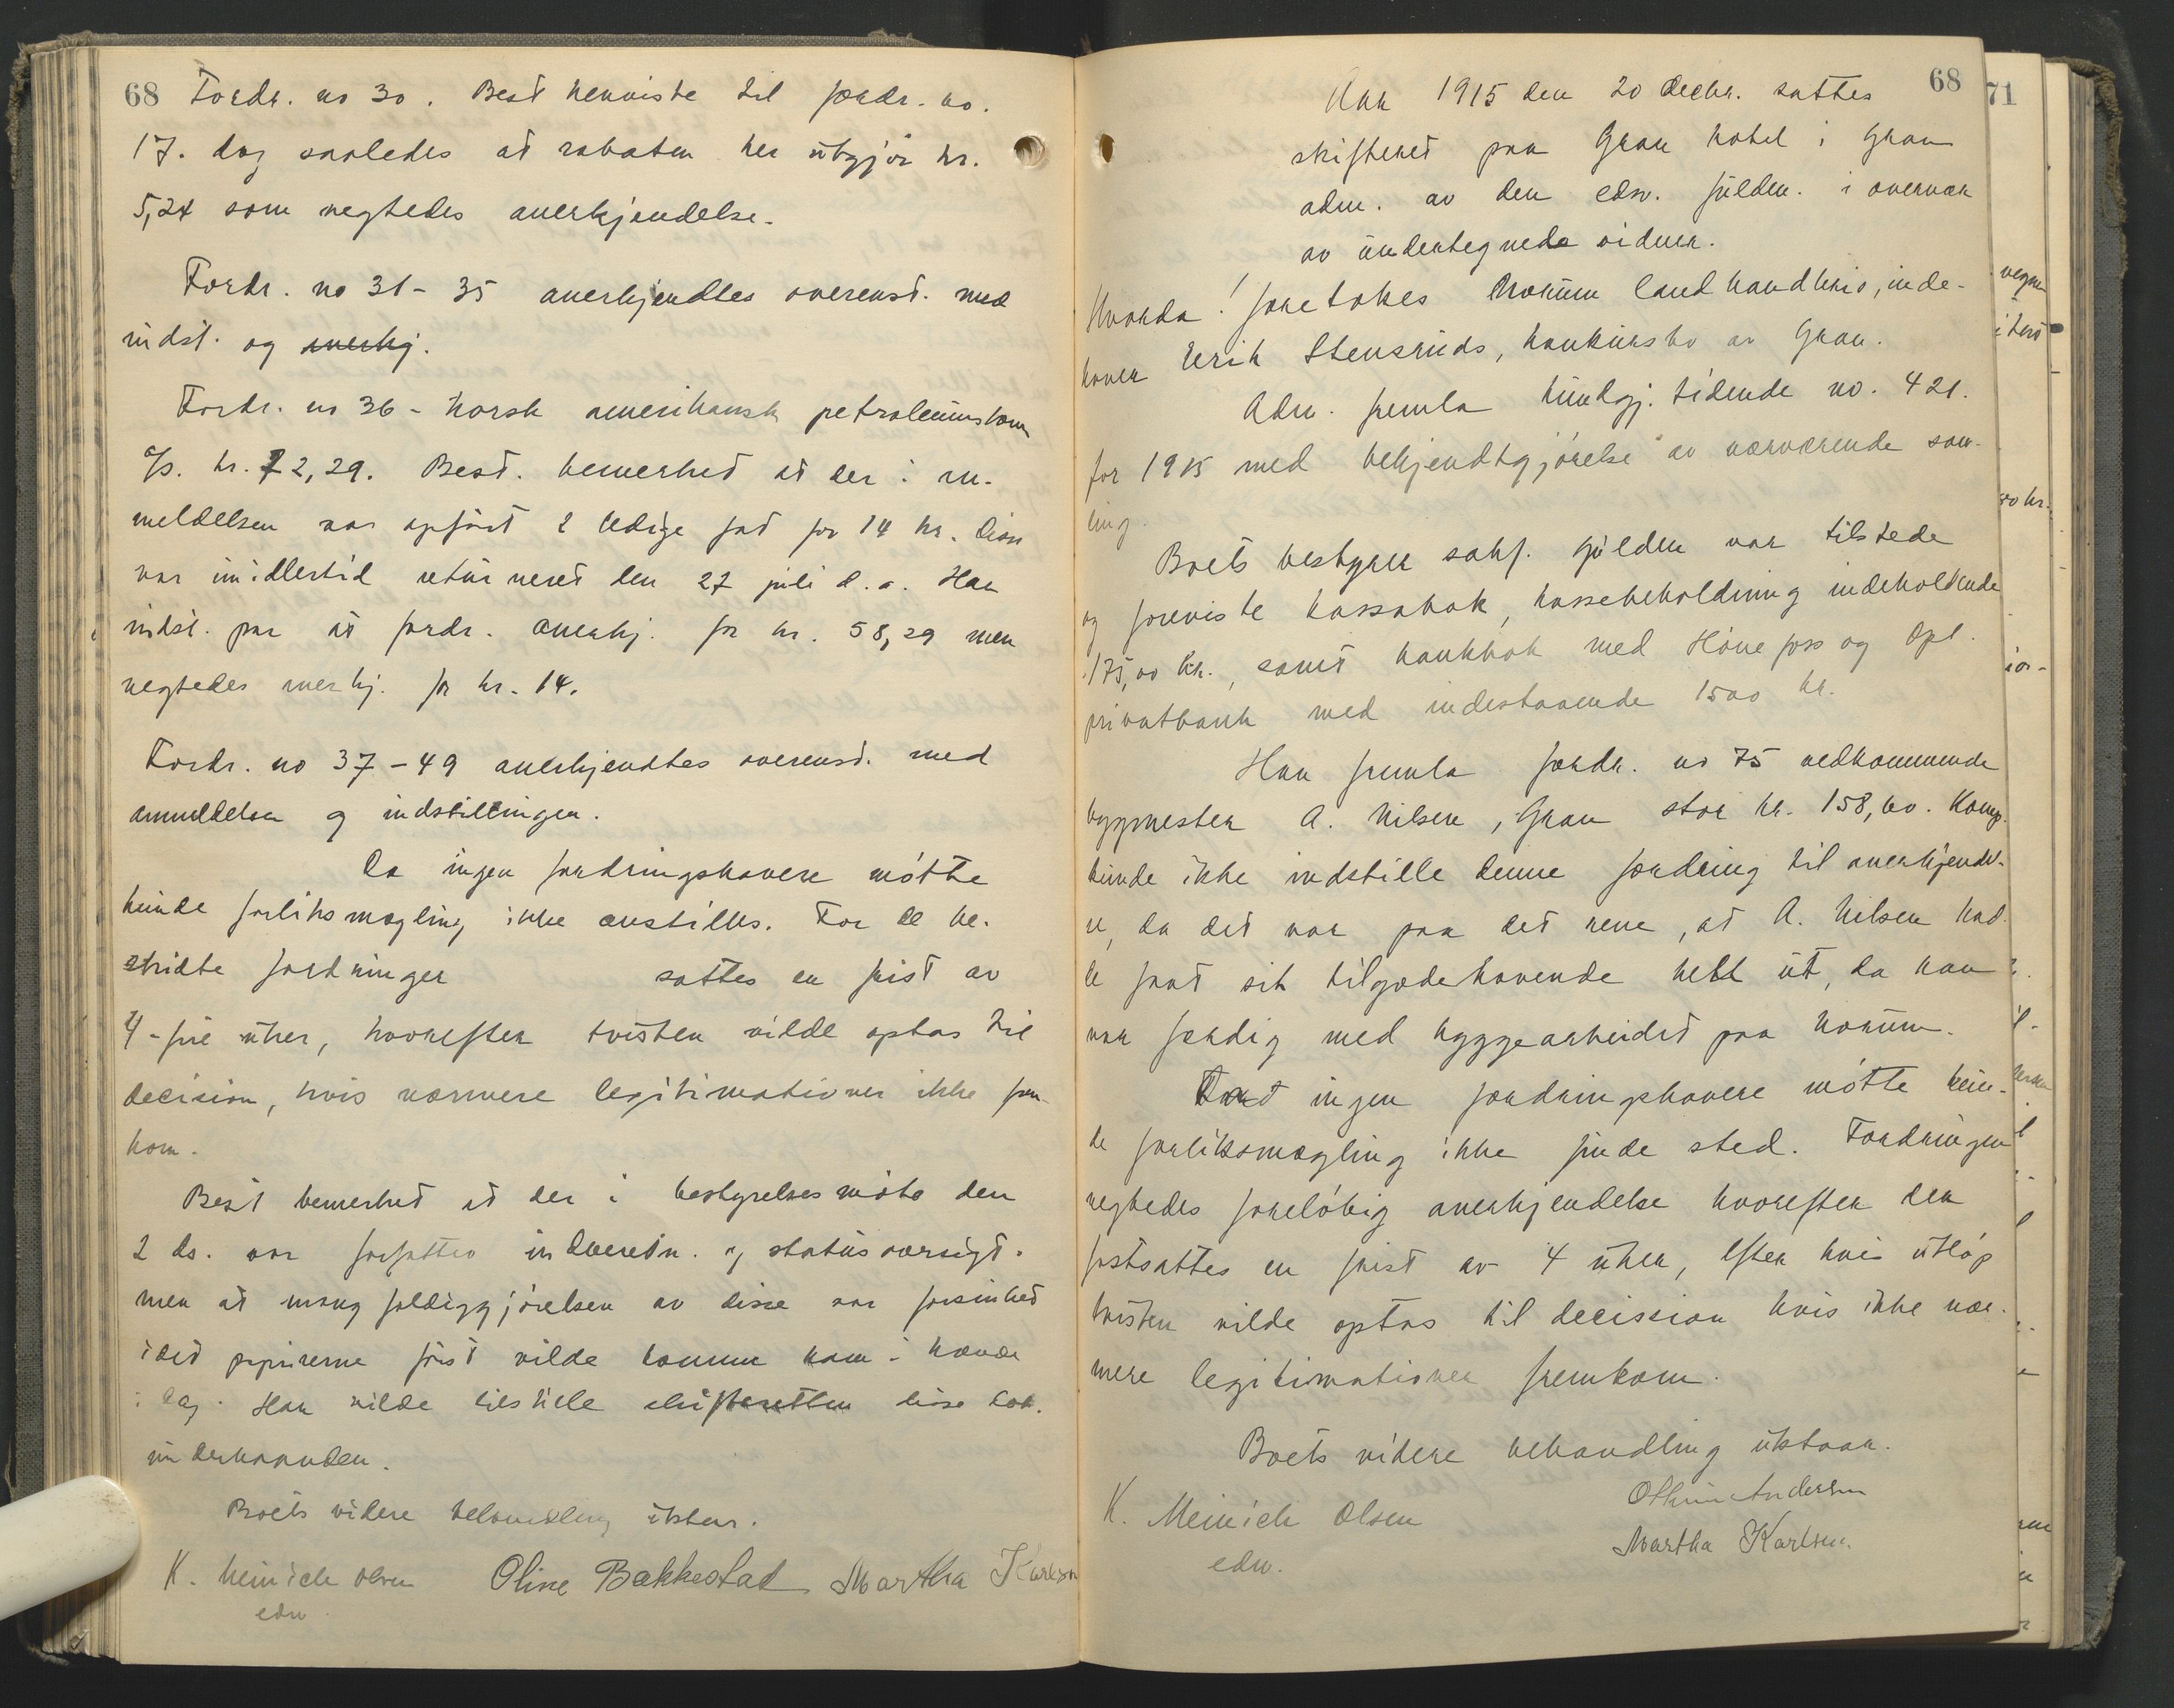 68 Fordr. no 30. Best henviste til fordr. no.
17. dog saaledes at rabaten her utgjør kr.
5,24 som negtedes anerkjendelse.
Fordr. no 31 - 35 anerkjendtes overenst. med
indst. og anerkj.
Fordr. no 36 - Norsk amerikansk petroleumskom
A/s. kr. 72,29. Best. bemerket at der i an-
meldelsen var opført 2 ledige fat for 14 kr. Disse
var imidlertid returneret den 27 juli d.a. Han
indst. paa at fordr. anerkj. for kr. 58,29 men
negtedes anerkj. for kr. 14.
Fordr. no 37 - 49 anerkjendtes overenst. med
anmeldelsen og indstillingen.
Da ingen fordringshavere møtte
kunde forliksmægling ikke anstilles. For de be-
stridte fordringer sattes en frist av
4 - fire uker, hvorefter tvisten vilde optas til
decision, hvis nærmere legitimationer ikke frem
kom.
Best bemerket at der i bestyrelsesmøte den
2 ds. var forfattet indberetn. og statusoversigt.
men at mangfoldiggjørelsen av disse var forsinket
idet papirerne først vilde komme ham i hænde
i dag. Han vilde tilstille skifteretten disse dok.
underhaanden.
Boets videre behandling utstaar.
K. Meinich Olsen Oline Bakkestad Martha Karlsen
edsv.
68
Aar 1915 den 20 decbr. sattes
skifteret paa Gran hotel i Gran
adm. av den edsv. fuldm. i overvær
av undertegnede vidner.
Hvorda! foretokes Norum landhandleris, inde-
haver Erik Stensruds, konkursbo av Gran.
Adm. fremla kundgj. tidende no. 421.
for 1915 med bekjendtgjørelse av nærværende sam-
ling.
Boets bestyrer sakf. Gulden var tilstede
og foreviste kassabok, kassebeholdning indeholdende
175,00 kr., samt bankbok med Hønefoss og Opl.
privatbank med indestaaende 1500 kr.
Han fremla fordr. no 75 vedkommende
bygmester A. Nilsen, Gran stor kr. 158,60. Komp.
kunde ikke indstille denne fordring til anerkjendel-
se, da det var paa det rene, at A. Nilsen had-
de faat sit tilgodehavende helt ut, da han
var færdig med byggearbeidet paa Norum.
Da ingen fordringshavere møtte kun-
de forliksmægling ikke finde sted. Fordringen
negtedes foreløbig anerkjendelse hvorefter der
fastsattes en frist av 4 uker, efter hvis utløp
tvisten vilde optas til decission hvis ikke nær-
mere legitimationer fremkom.
Boets videre behandling utstaar.
K. Meinich Olsen
edsv.
Andersen
Martha Karlsen.
71